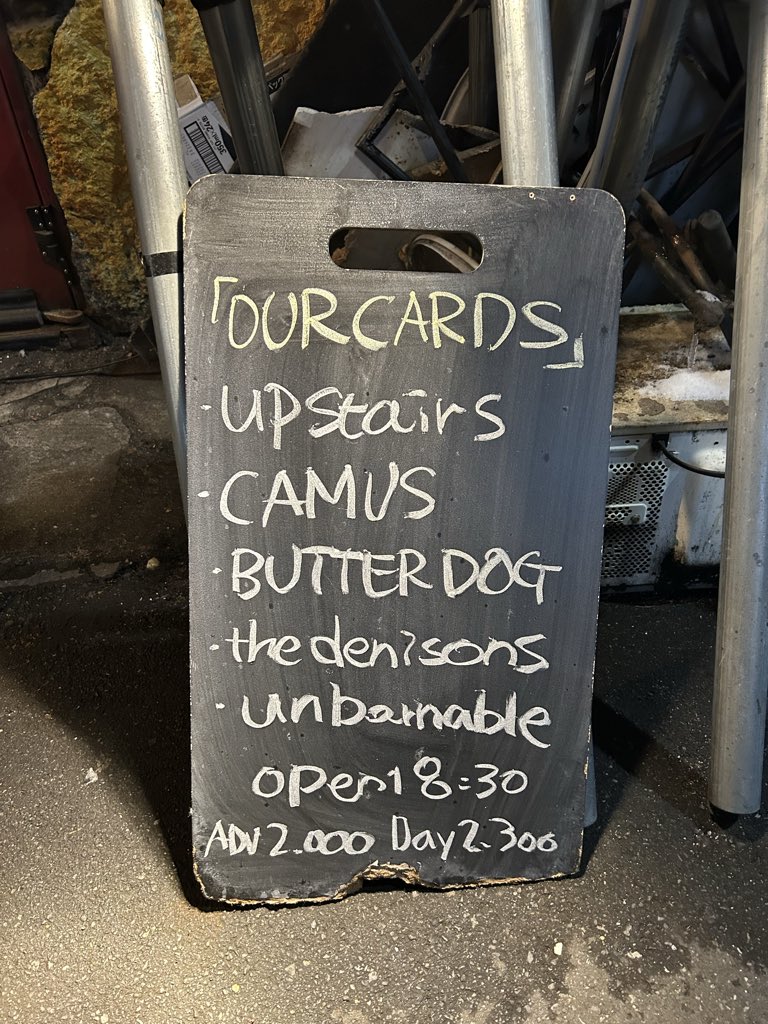 350ml×24缶
「OUR CARDS」
· upstairs
· CAMUS
· BUTTER DOG
· the denisons
· unbarnable
open 18:30
ADV 2.000 Day 2.300